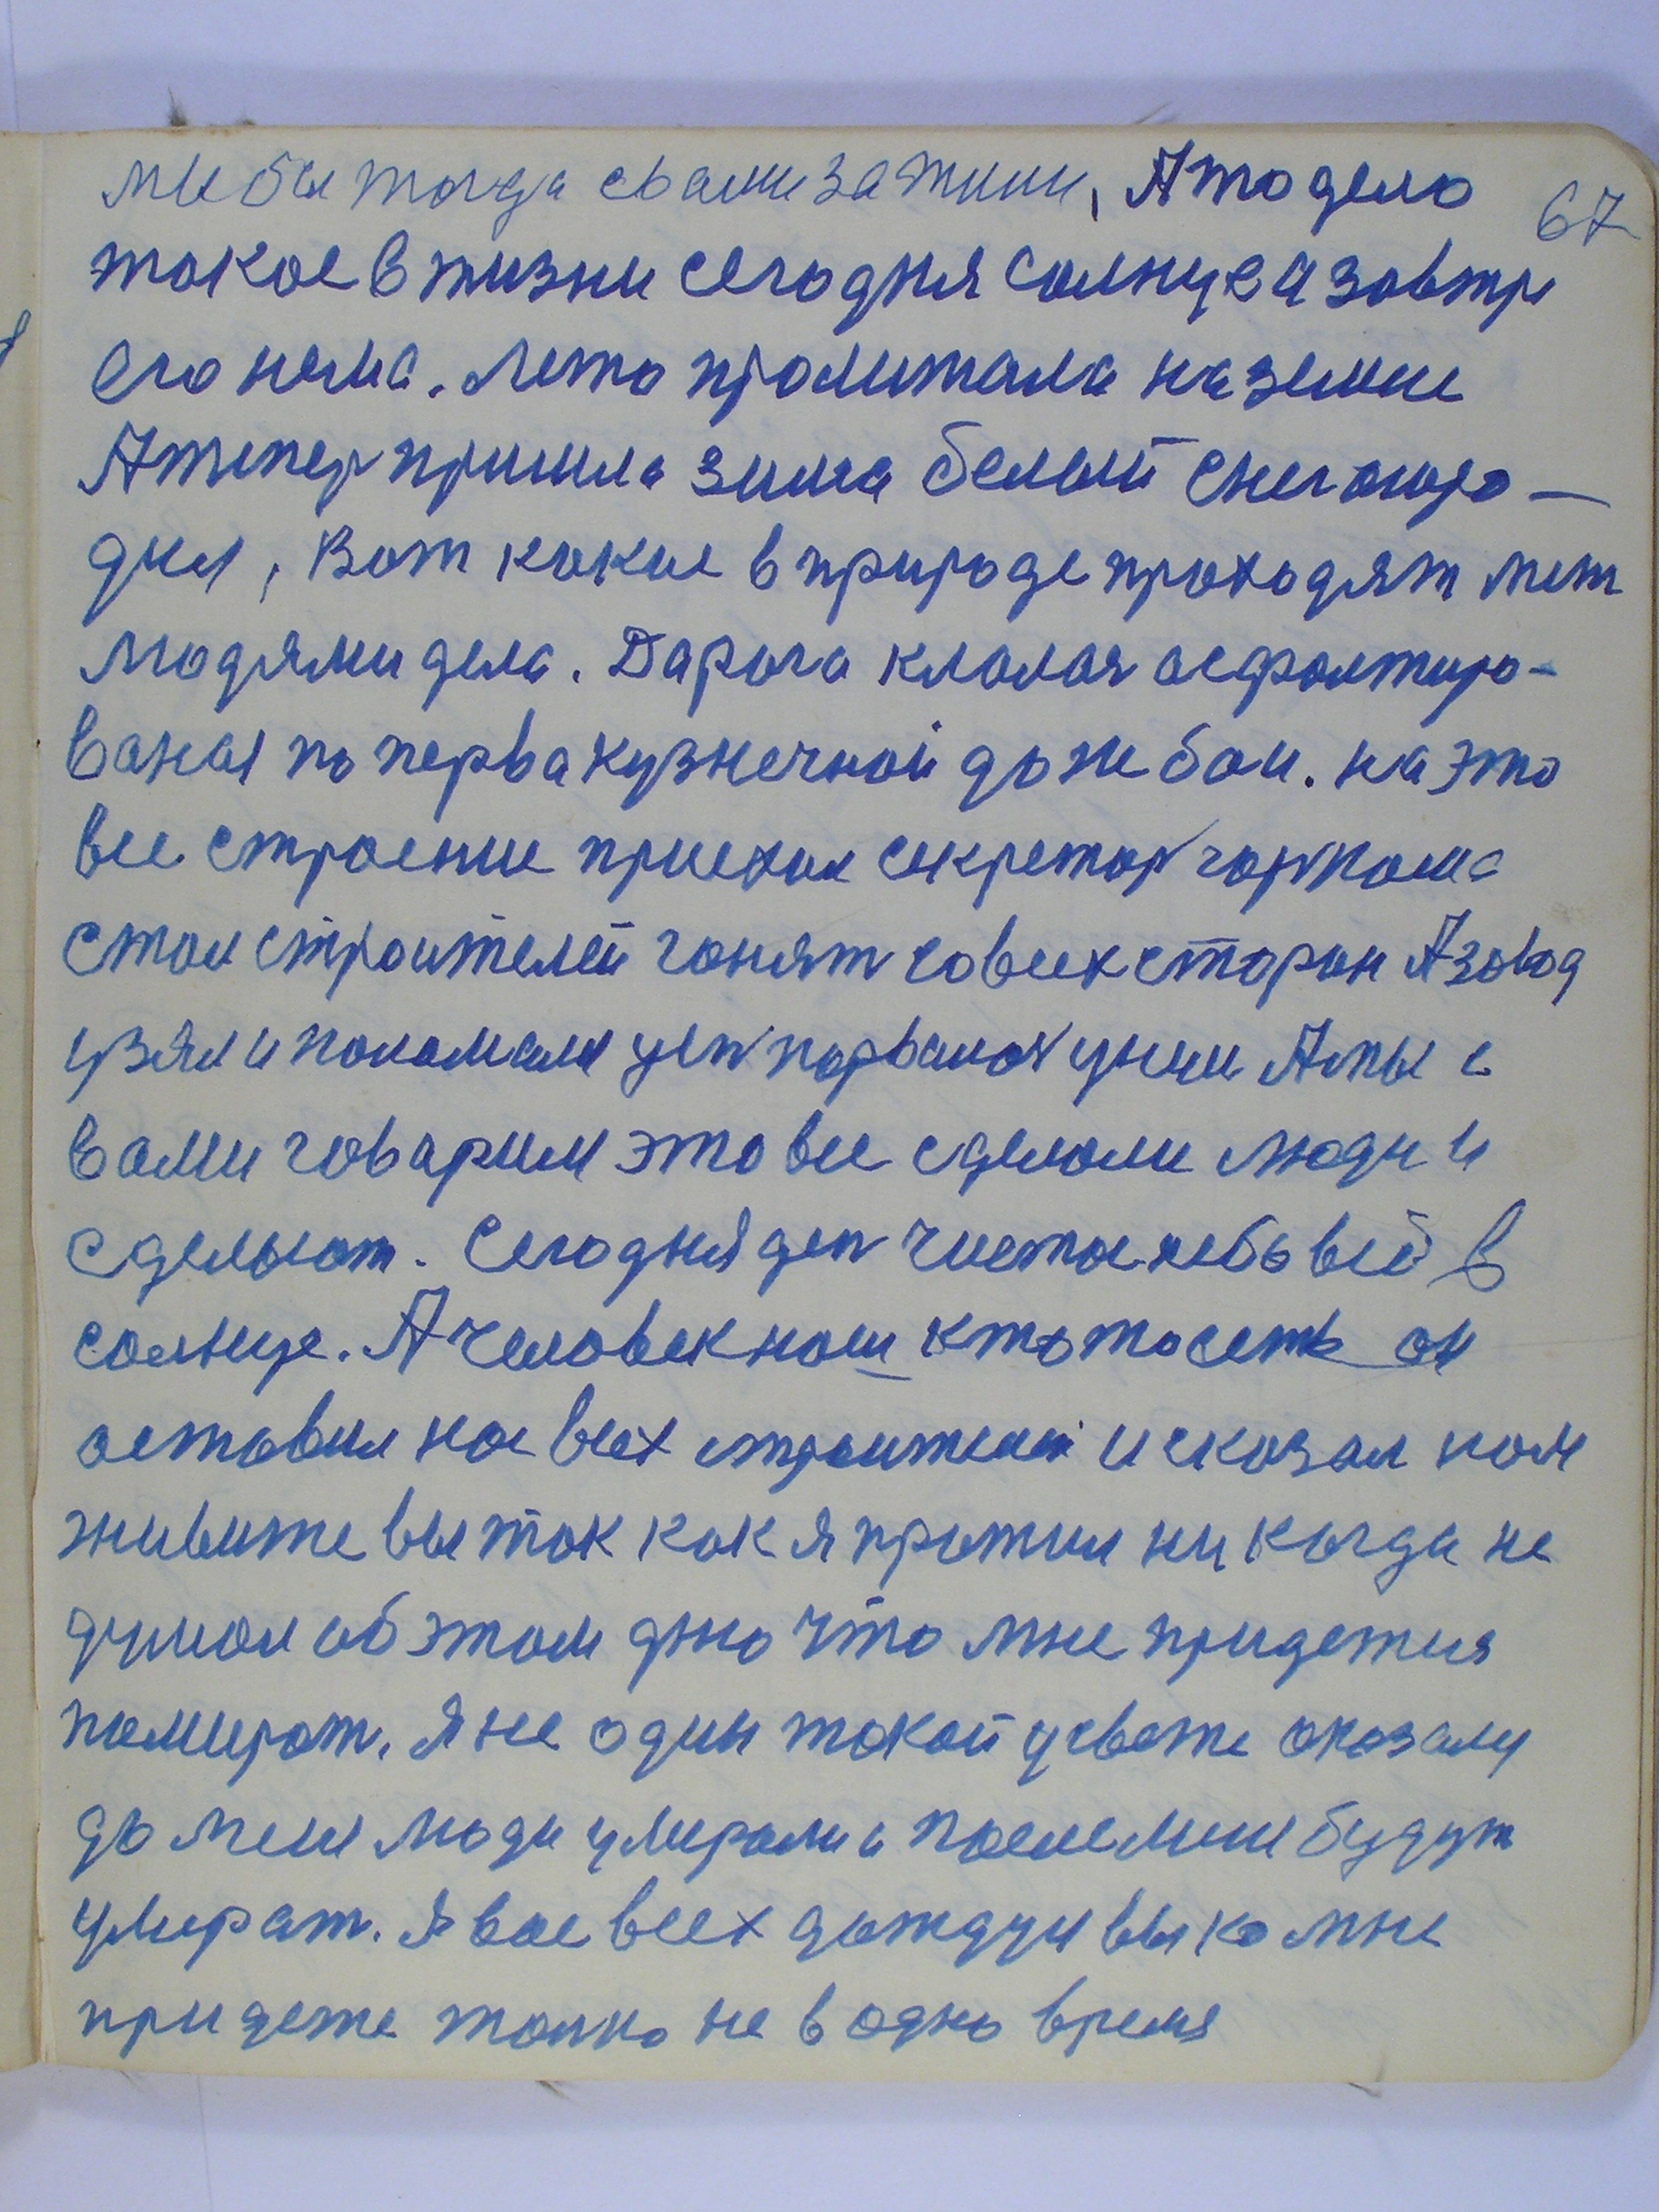 мы бы тогда свами зажили, А то дело
67
токое в жизни сегодня солнце а завтри
его нема. Лето пролитала на земле
А типер пришла зима белый снег ошро—
дил, Вот какие в природе проходят меж
людями дела. Дарога клалая асфолтиро-
ваная по перва кузнечной дк же бои. на это
все строение приехал секретор горпкома
стал строителей гонят совсех сторон А завод
узял и поламал цеп порвалой унии А мы с
вами говарим это все сделоли люди и
сделыют. Сегодня ден чистое небо всё в
солнце. А человек нош кто то есть он
оставил нос всех строителей и сказал ном
живите вы ток как я прожил ни когда не
думал об этом дно что мне придетця
помирот. Я не один токой у свете оказалу
до меня люди умирали и после мине будут
умират. Я вос всех дождуи вы ко мне
придете толко не в одно время